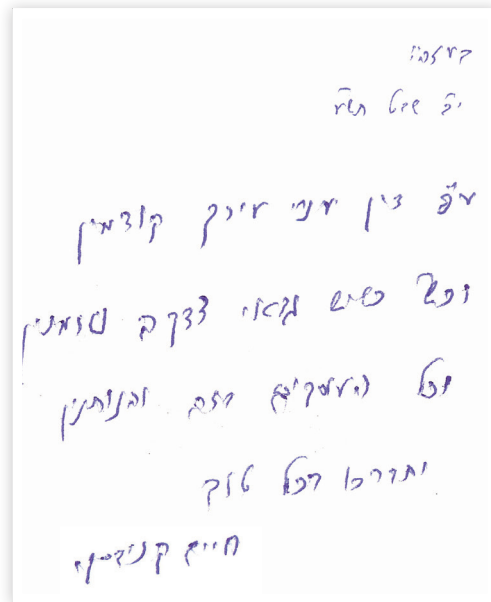 בעזה"י
י"ב שבט תש"ע
ע"פ דין עניי עירך קודמין
כשיש גבאי צדקה נאמנין
וכל העוסקים בזה והנותנין
יתברכו בכל טוב
חיים קניבסקי